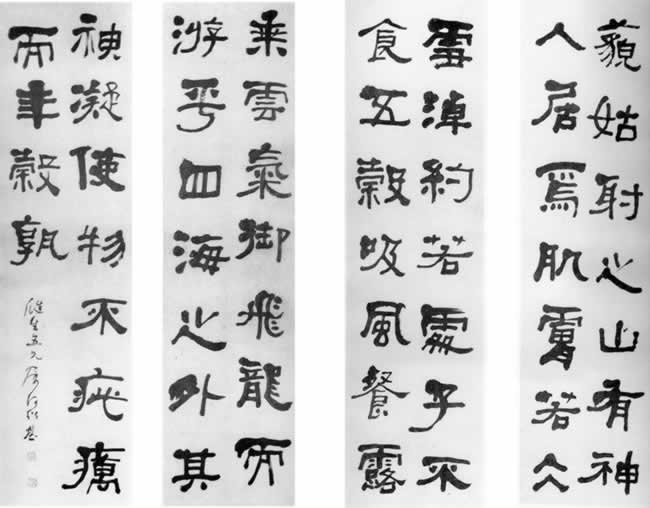 藐姑射之山有神
人居焉肌膚若仌
雪淖約若處子不
食五穀吸風餐露
乘雲氣御飛龍而
游乎四海之外其
神凝使物不疵癘
而年穀孰
五兄屬何紹基